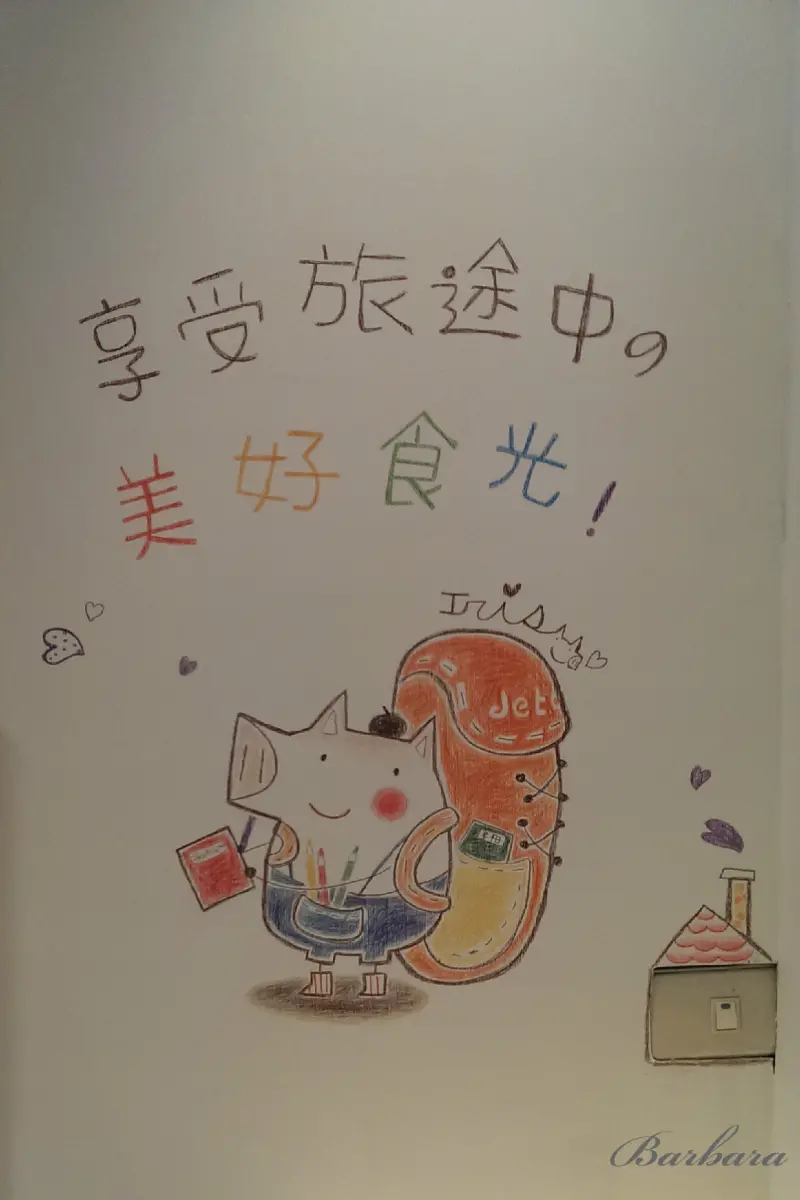 享受旅途中の
美好食光！
Irisy
Jets
Barbara